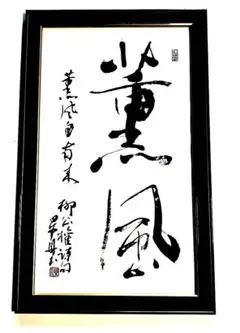 薰風
薰風自南来
柳公權詩句